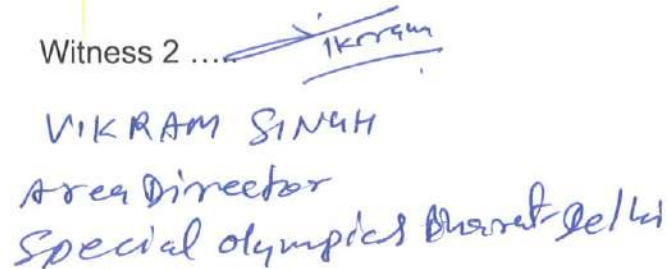 Witness 2 ..... Vikram
VIKRAM SINGH
Area Director
Special Olympics Bharat-Delhi